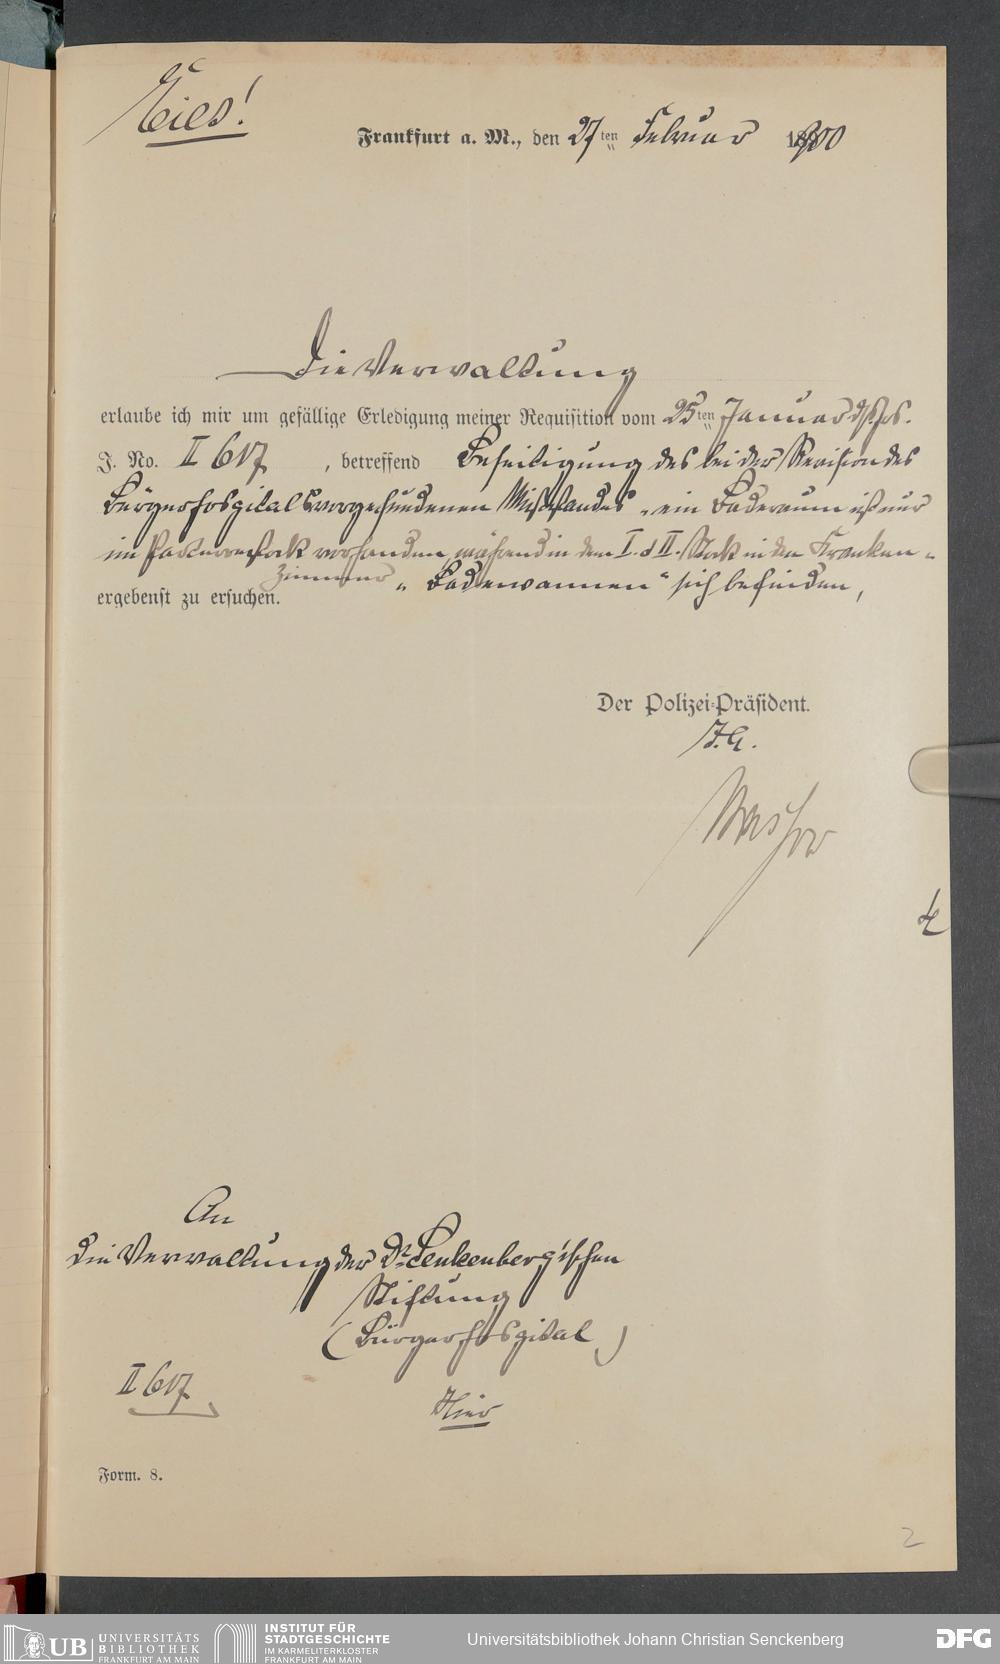 Eilt!
Frankfurt a. M., den 27ten Februar 1900
Die Verwaltung
erlaube ich mir um gefällige Erledigung meiner Requisition vom 25ten Januar d/Js.
J. No. II 617, betreffend Beseitigung des bei der Revision des
Bürgerhospitals vorgefundenen Mißstandes „ein Baderaum ist nur
im Parterrestock vorhanden, während in dem I. u II. Stock in den Kranken-
zimmern „Badewannen“ sich befinden,
ergebenst zu ersuchen.
Der Polizei-Präsident.
J.A.
An
die Verwaltung der Dr Senckenberg'ischen
Stiftung
(Bürgerhospital)
II 617
Hier
Form. 8.
2
UB UNIVERSITÄTS
BIBLIOTHEK
FRANKFURT AM MAIN
INSTITUT FÜR
STADTGESCHICHTE
IM KARMELITERKLOSTER
FRANKFURT AM MAIN
Universitätsbibliothek Johann Christian Senckenberg
DFG